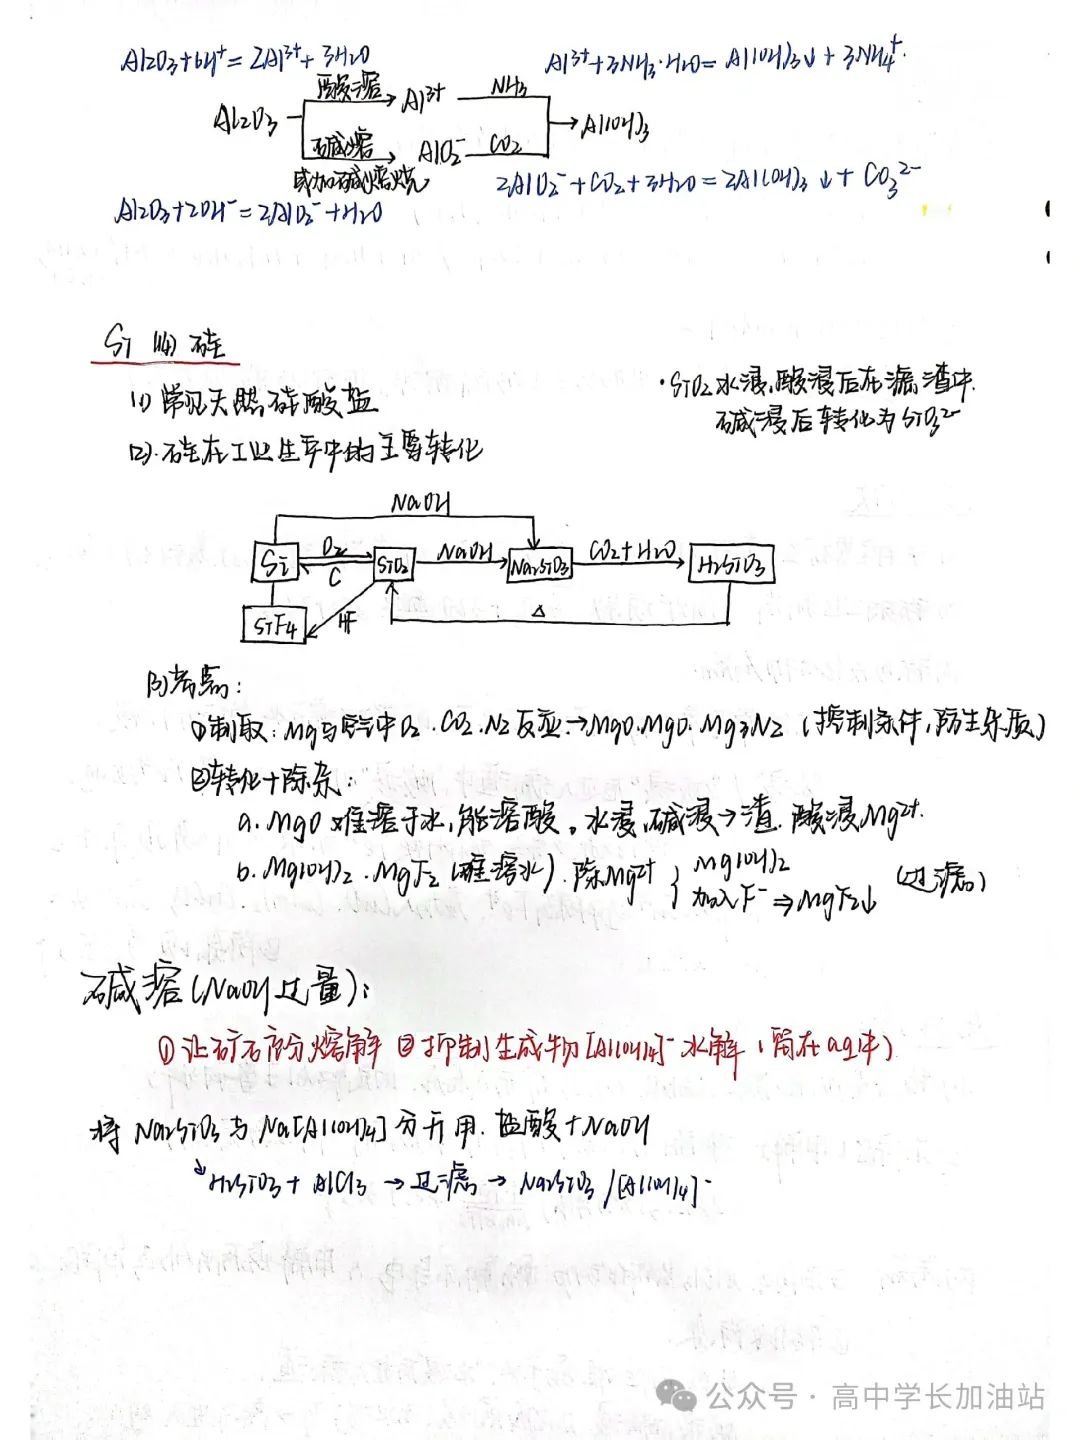 Al2O3+6H⁺=2Al³⁺+3H2O
Al³⁺+3NH3·H2O=Al(OH)3↓+3NH4⁺.
Al2O3 酸溶 Al³⁺ NH3 → Al(OH)3
碱熔 AlO2⁻ CO2
或加碱熔烧
2AlO2⁻+CO2+3H2O=2Al(OH)3↓+CO3²⁻
Al2O3+2OH⁻=2AlO2⁻+H2O
Si (14) 硅
(1) 常见天然硅酸盐
·SiO2水浸,酸浸后在滤渣中.
碱浸后转化为SiO3²⁻
(2).硅在工业生产中的主要转化
NaOH
Si O2 C SiO2 NaOH Na2SiO3 CO2+H2O H2SiO3
SiF4 HF △
(3)考点:
①制取:Mg与空气中O2.CO2.N2反应→MgO.MgO.Mg3N2 (控制条件,防生杂质)
②转化+除杂:
a.MgO难溶于水,能溶酸。水浸,碱浸→渣.酸浸Mg²⁺.
b.Mg(OH)2.MgF2(难溶水).除Mg²⁺ } Mg(OH)2
加入F⁻⇒MgF2↓ (过滤)
碱溶(NaOH过量):
①让矿石充分熔解 ②抑制生成物[Al(OH)4]⁻水解(留在aq中)
将Na2SiO3与Na[Al(OH)4]分开用.盐酸+NaOH
↓H2SiO3+AlCl3→过滤→Na2SiO3/[Al(OH)4]⁻
公众号·高中学长加油站